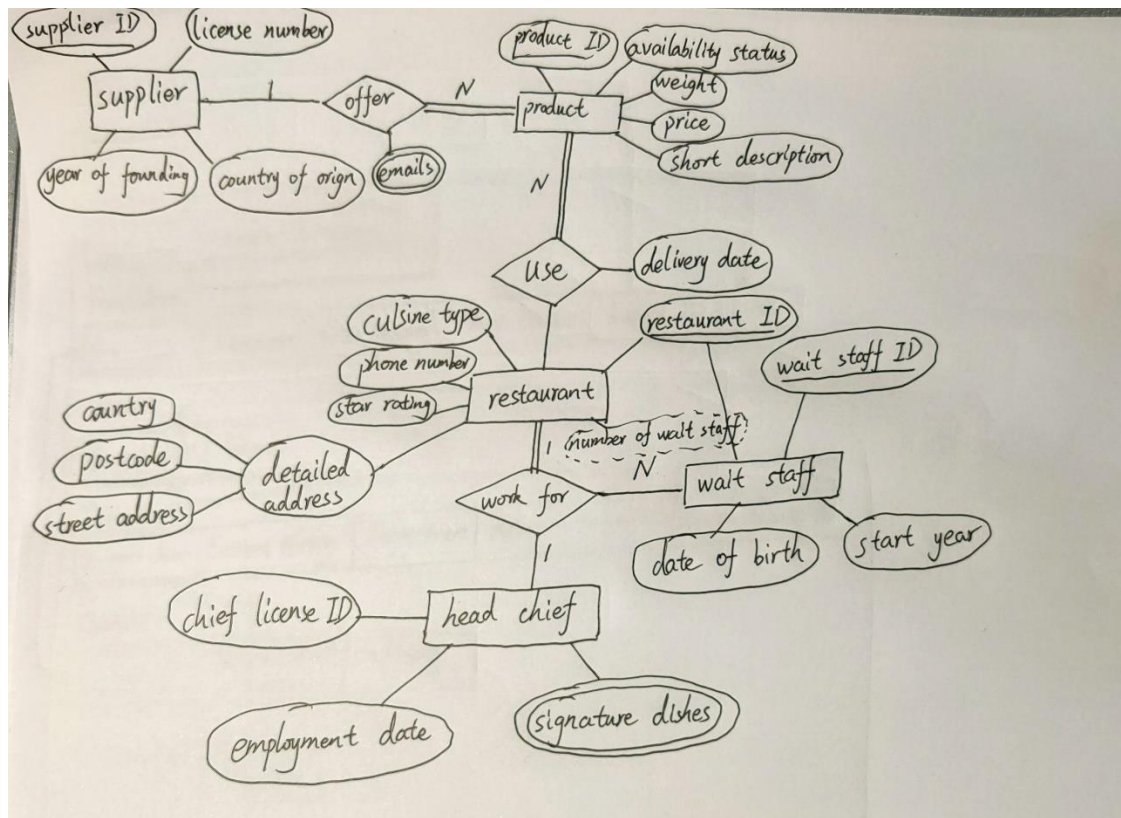 supplier ID
license number
supplier
1
offer
N
product
product ID
availability status
weight
price
short description
year of founding
country of orign
emails
N
use
delivery date
culsine type
phone number
star rating
restaurant
restaurant ID
wait staff ID
country
postcode
street address
detailed
address
1
number of wait staff
work for
N
wait staff
date of birth
start year
1
chief license ID
head chief
employment date
signature dishes